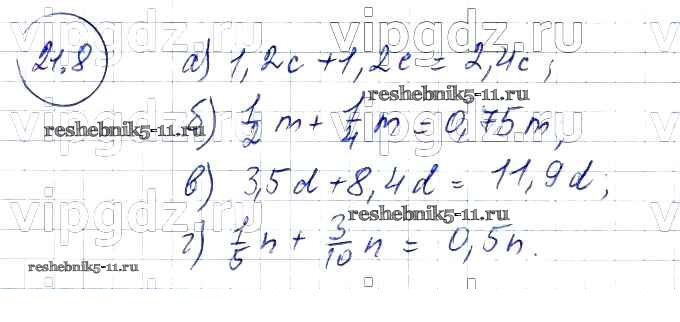 vipgdz.ru vipgdz.ru
21.8 а) 1,2c + 1,2c = 2,4c;
reshebnik5-11.ru
б) 1/2 m + 1/4 m = 0,75m,
reshebnik5-11.ru
vipgdz.ru vipgdz.ru
в) 3,5d + 8,4d = 11,9d;
vipgdz.ru vipgdz.ru
reshebnik5-11.ru
г) 1/5 n + 3/10 n = 0,5n.
reshebnik5-11.ru